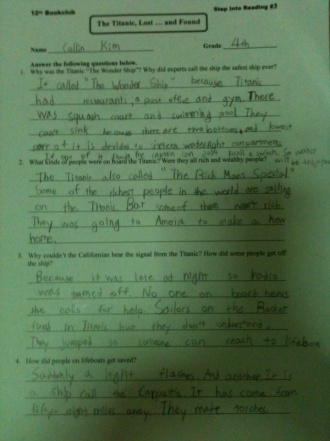 12th Bookclub
Step into Reading #3
The Titanic, Lost ... and Found
Name Collin Kim Grade 4th
Answer the following questions below.
1. Why was the Titanic "The Wonder Ship"? Why did experts call the ship the safest ship ever?
It called "The Wonder Ship" because Titanic
had restaurants, a post office and gym. There
was squash court and swimming pool. They
can't sink because there are two bottoms, and lowest
part of it is devided to sixteen watertight compartments.
If one of it floods the captain can just pull a switch. So water
will be trapped
2. What kinds of people were on board the Titanic? Were they all rich and wealthy people?
The Titanic also called "The Rich Mans Special"
Some of the richest people in the world are sailing
on the Titanic But some of them weren't rich.
They was going to Ameria to make a new
home.
3. Why couldn't the Californian hear the signal from the Titanic? How did some people get off
the ship?
Because it was late at night so radio
was turned off. No one on board hears
the calls for help. Sailors on the
in but they don't understand.
They jumped so someone can reach to lifeboat
4. How did people on lifeboats get saved?
Suddenly a light flashes. And another It is
a ship call the Carpathia. It has come from
fifty-eight miles away. They make torches.